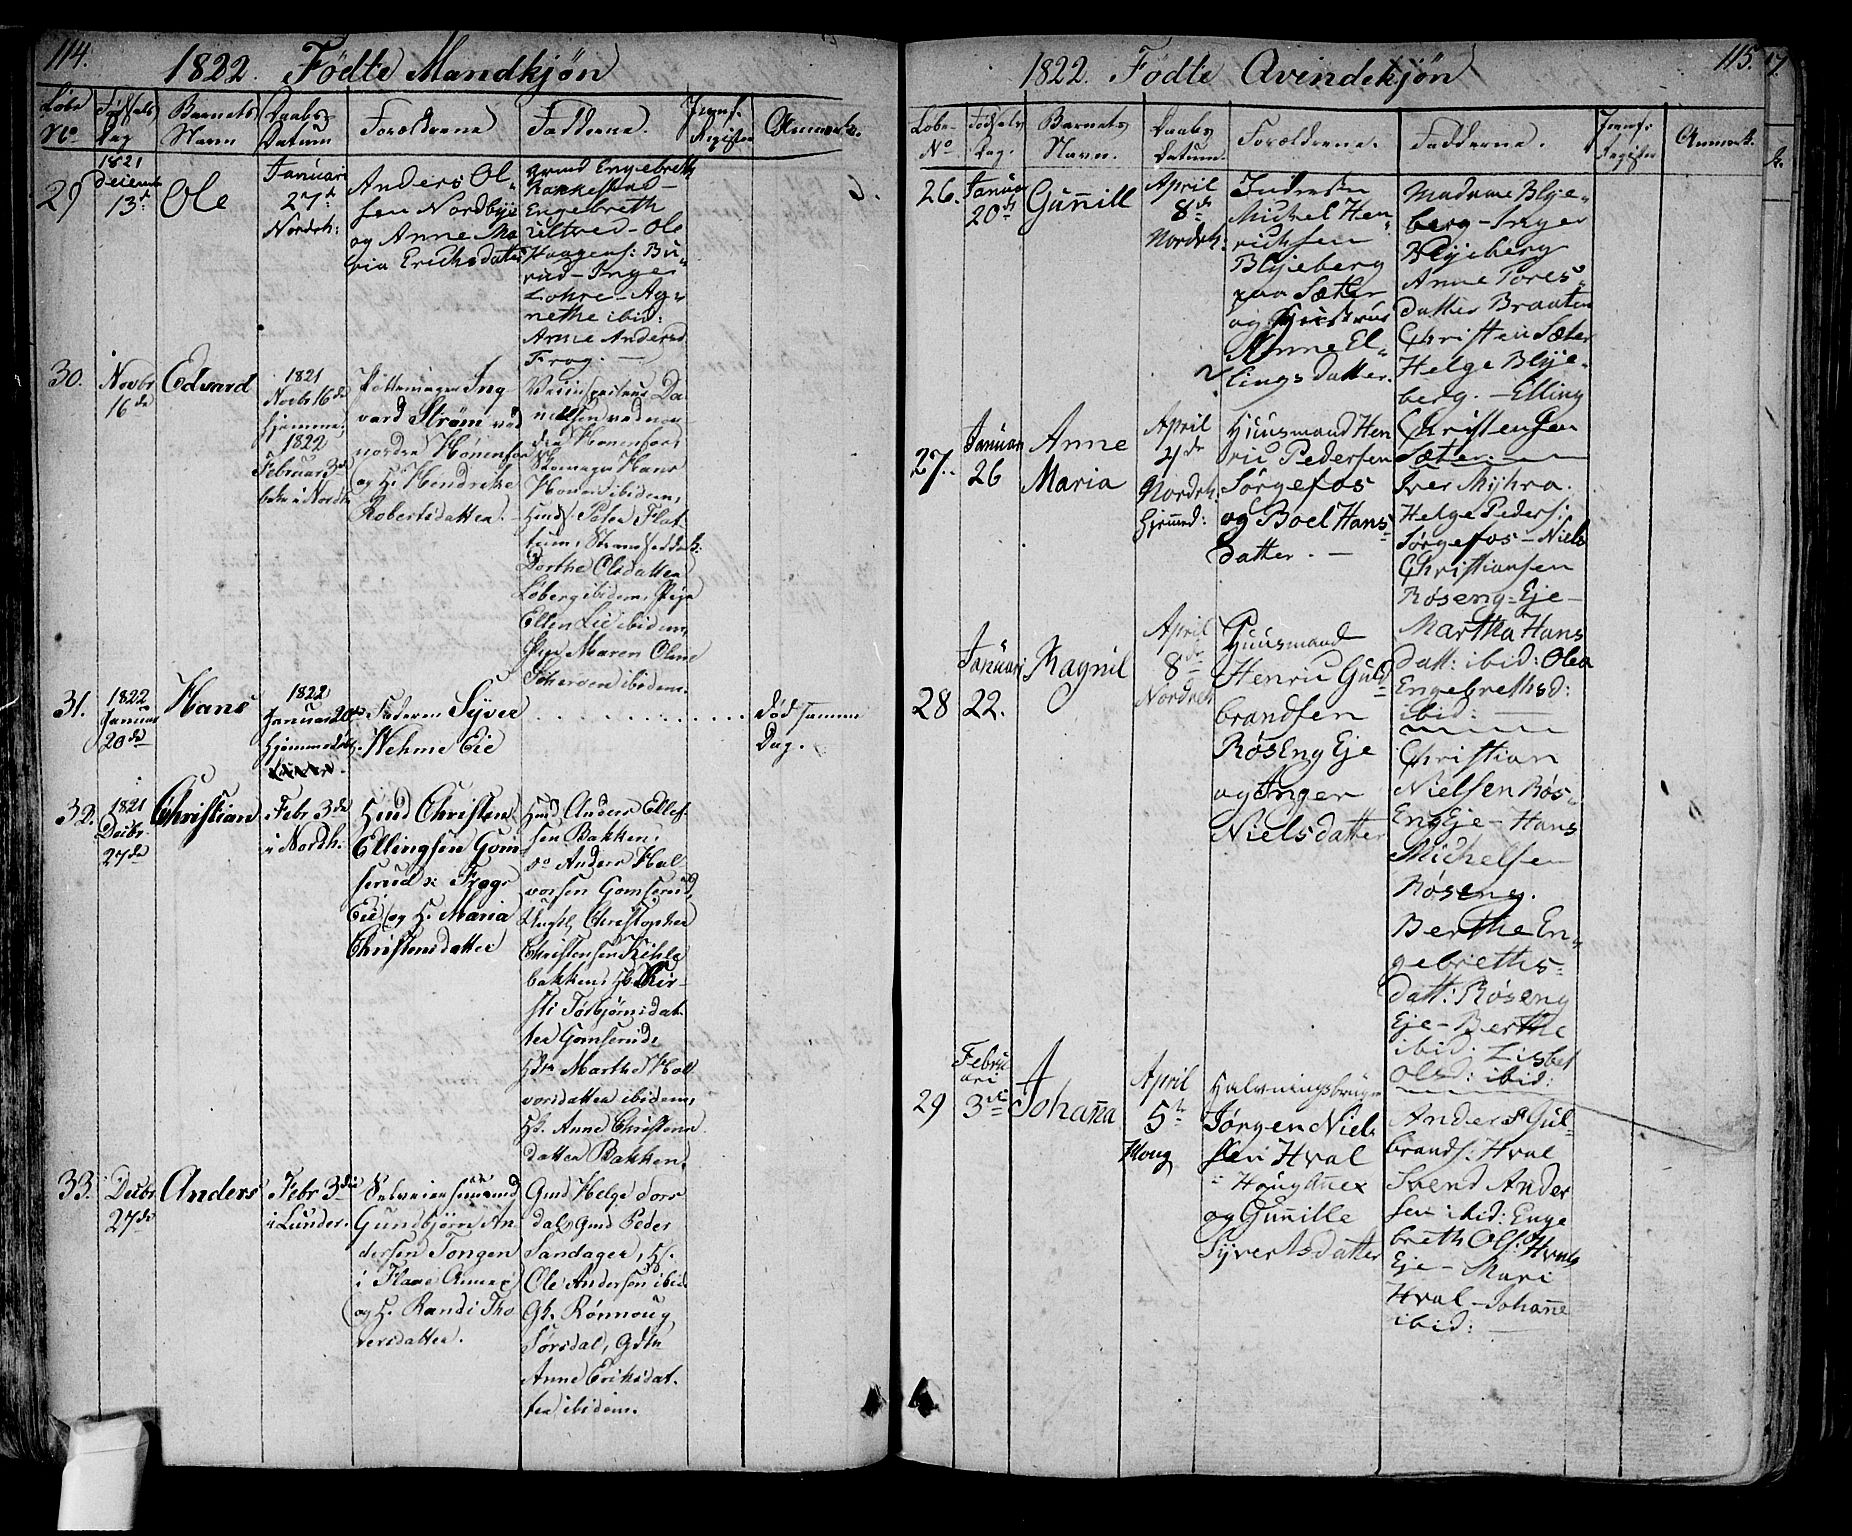 114.
1822. Fødte Mandkjøn
Løbe No
Fødsels Dag
Barnets Navn
Daabs Datum
Forældrene
Fadderne.
Jevnf. Register
Anmærk.
29
1821
Decemb
13de
Ole
Januari
27de
Nordrh:
Anders Ol-
sen Nordbye
og Anne Ma
ria Erichsdatter
Engebreth
Engebreth
Ultved - Ole
Haagens: Bu-
rud - Inger
Lohre - Ag-
nethe ibid:
Anne Andersd
Frog. -
30.
Novbr
16de
Edvard
1821
Novbr 16de
hjemme,
1822
Februar 3de
Pottemager Ing
vard Strøm ved
nordre Hønenfos
og H. Hendrikke
Robertsdatter.
Da-
nielsen ved nor-
dre Hønenfos,
Skomager Hans
Hønen ibidem,
Peter Flat-
tum,
Dorthe Olsdatter
Loberg ibidem, Pige
Ellen Lie ibidem,
Pige Maren Oline
ibidem.
31.
1822
Januar
20de
Hans
1822
Januar 20de
Hjemmedøbt
Faderen Syver
Wehme Eie
. . . . . . . . . . . .
Død samme
Dag.
32.
1821
Decbr.
27de
Christian
Febr 3de
i Nordh.
Hmd Christen
Ellingsen Gom-
serud i Frogs
Eie, og H. Maria
Christensdatter
Hmd Anders Ellef-
sen Bakken,
do Anders Hal
vorsen Gomserud,
Ungk, Christopher
Christensen Kihle
bakken, Kir-
sti Torbjørnsdat-
ter Gomserud,
Marthe Hal
vorsdatter ibidem,
H. Anne Christens
datter Bakken.
33.
Decbr
27de
Anders
Febr 3die
i Lunder.
Selveiersmand
Gundbjørn An
dersen Tongen
i Flaae Annex
og H. Randi Tho
versdatter.
Gmd Helge Sørs
dal, Gmd Peder
Sandager,
Ole Andersen ibid
Gk. Rønnoug
Sørsdal, Gdtr
Anne Eriksdat-
ter ibidem.
115.
1822. Fødte Qvindekjøn
Løbe No
Fødsels Dag.
Barnets Navn.
Daabs Datum.
Forældrene.
Fadderne.
Jevnf: Register
Anmærk.
26.
Januar
20de
Gunnill
April
8de
Nordrh:
Inderster
Michel Hen-
richsen
Blyeberg
paa Sæter
og Hustrue
Anne El-
lingsdatter.
Madame Blye-
berg - Inger
Blyeberg
Anne Tores-
datter Braaten
Christen Sæter
Helge Blye-
berg. - Elling
Christensen
Sæter.
27.
Januar
26
Anne
Maria
April
4de
Nordrh.
Hjemmed:
Huusmand Hen
ric Pedersen
Sørgefos
og Boel Hans-
datter. -
Iver Myhra.
Helge Peders:
Sørgefos - Niels
Christiansen
Røseng-Eje -
Martha Hans
datt: ibid: Olea
Engebrethsd:
ibid:
28
Januari
22.
Ragnil
April
8de
Nordreh
Huusmand
Henric Guld-
brandsen
RøsEng Eje
og Inger
Nielsdatter
Christian
Nielsen Røs-
Eng Eje - Hans
Michelsen
Røseng.
Berthe En-
gebreths-
datt: Røseng
Eje - Berthe
ibid: Lisbet
Olsd: ibid:
29
Febru
ari
3de
Johanna
April
5te
Houg
Halvningsbruger
Jørgen Niel-
sen Hval
Houg Anex
og Gunnille
Syvertsdatter
Anders Gul-
brands: Hval
Svend Ander
sen ibid: Enge
breth Ols: Hvals
Eje - Mari
Hval - Johanne
ibid: